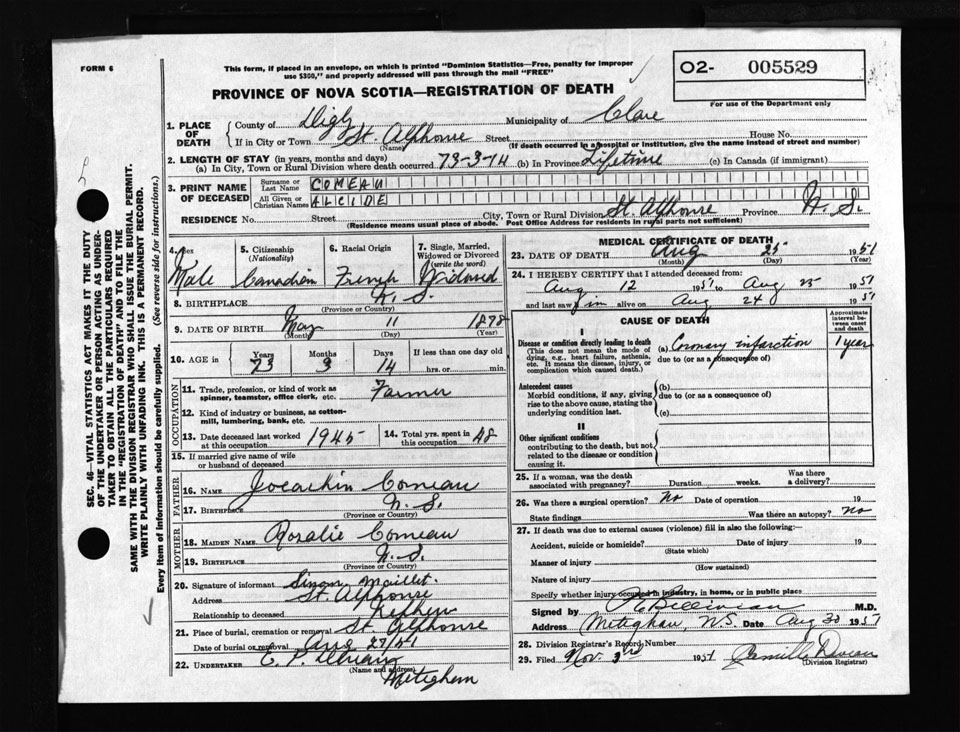 FORM 6
This form, if placed in an envelope, on which is printed "Dominion Statistics—Free, penalty for improper
use $300," and properly addressed will pass through the mail "FREE"
O2- 005529
For use of the Department only
PROVINCE OF NOVA SCOTIA—REGISTRATION OF DEATH
1. PLACE OF DEATH { County of Digby Municipality of Clare
If in City or Town St. Alphonse Street House No.
(Name) (If death occurred in a hospital or institution, give the name instead of street and number)
2. LENGTH OF STAY (in years, months and days)
(a) In City, Town or Rural Division where death occurred 73-3-14 (b) In Province Lifetime (c) In Canada (if immigrant)
3. PRINT NAME OF DECEASED { Surname or Last Name COMEAU
All Given or Christian Names ALCIDE
RESIDENCE No. Street City, Town or Rural Division St. Alphonse Province N. S.
(Residence means usual place of abode. Post Office Address for residents in rural parts not sufficient)
4. Sex 5. Citizenship (Nationality) 6. Racial Origin 7. Single, Married, Widowed or Divorced (write the word)
Male Canadian French Widowed
8. BIRTHPLACE N. S.
(Province or Country)
9. DATE OF BIRTH May 11 1878
(Month) (Day) (Year)
10. AGE in Years Months Days If less than one day old
73 3 14 hrs. or min.
OCCUPATION
11. Trade, profession, or kind of work as spinner, teamster, office clerk, etc. Farmer
12. Kind of industry or business, as cotton-mill, lumbering, bank, etc.
13. Date deceased last worked at this occupation 1945 14. Total yrs. spent in this occupation 48
15. If married give name of wife or husband of deceased
FATHER
16. NAME Joeachin Comeau
17. BIRTHPLACE N. S.
(Province or Country)
MOTHER
18. MAIDEN NAME Rosalie Comeau
19. BIRTHPLACE N. S.
(Province or Country)
20. Signature of informant Simon Maillet
Address St. Alphonse
Relationship to deceased Nephew
21. Place of burial, cremation or removal St. Alphonse
Date of burial or removal Aug 27/51
22. UNDERTAKER E. P.
(Name and address)
Meteghan
MEDICAL CERTIFICATE OF DEATH
23. DATE OF DEATH Aug 25 1951
(Month) (Day) (Year)
24. I HEREBY CERTIFY that I attended deceased from:
Aug 12 1951 to Aug 25 1951
and last saw him alive on Aug 24 1951
CAUSE OF DEATH
Approximate interval between onset and death
I
Disease or condition directly leading to death (a) Coronary infarction 1 year
(This does not mean the mode of dying, e.g., heart failure, asthenia, etc. It means the disease, injury, or complication which caused death.)
due to (or as a consequence of)
Antecedent causes (b)
Morbid conditions, if any, giving rise to the above cause, stating the underlying condition last.
due to (or as a consequence of)
(c)
II
Other significant conditions
contributing to the death, but not related to the disease or condition causing it.
25. If a woman, was the death associated with pregnancy? Duration weeks. Was there a delivery?
26. Was there a surgical operation? No Date of operation 19
State findings Was there an autopsy? No
27. If death was due to external causes (violence) fill in also the following:—
Accident, suicide or homicide? Date of injury 19
(State which)
Manner of injury
(How sustained)
Nature of injury
Specify whether injury occurred in industry, in home, or in public place
Signed by Belliveau M.D.
Address Meteghan, N.S. Date Aug 30 1951
28. Division Registrar's Record Number
29. Filed Nov. 3rd 1951 Camille
(Division Registrar)
SEC. 46—VITAL STATISTICS ACT MAKES IT THE DUTY
OF THE UNDERTAKER OR PERSON ACTING AS UNDER-
TAKER TO OBTAIN ALL THE PARTICULARS REQUIRED
IN THE "REGISTRATION OF DEATH" AND TO FILE THE
SAME WITH THE DIVISION REGISTRAR WHO SHALL ISSUE THE BURIAL PERMIT.
WRITE PLAINLY WITH UNFADING INK. THIS IS A PERMANENT RECORD.
Every item of information should be carefully supplied. (See reverse side for instructions.)